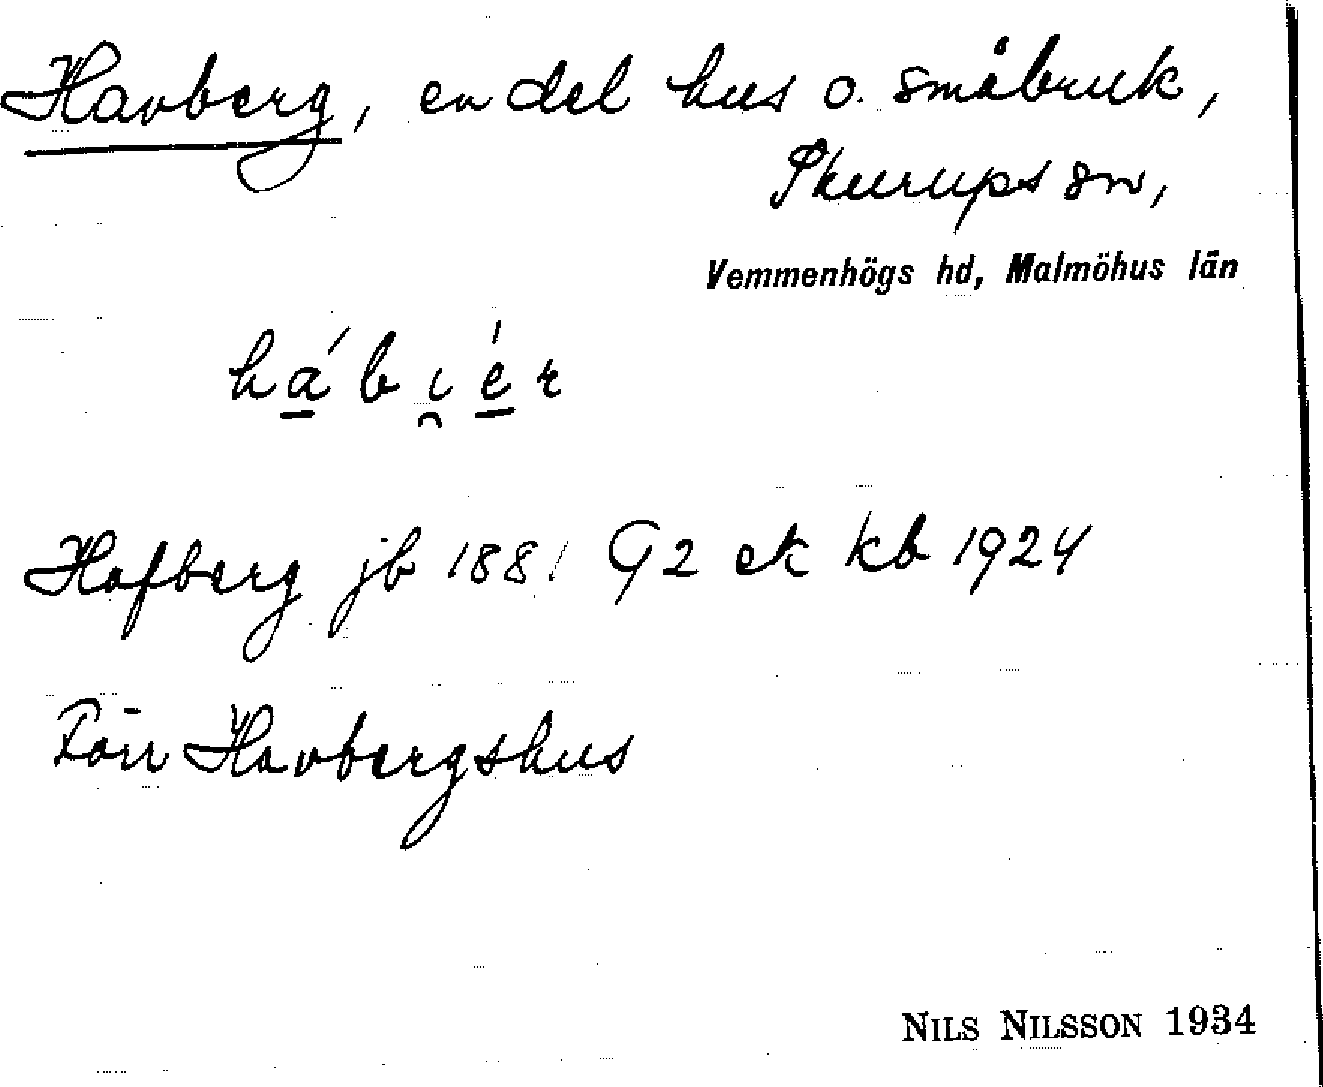 Havberg, en del hus o. småbruk,
Skurups sn,
Vemmenhögs hd, Malmöhus län
hábi̯ér
Hafberg jb 1881 G2 ek kb 1924
Förr Havbergshus
NILS NILSSON 1934